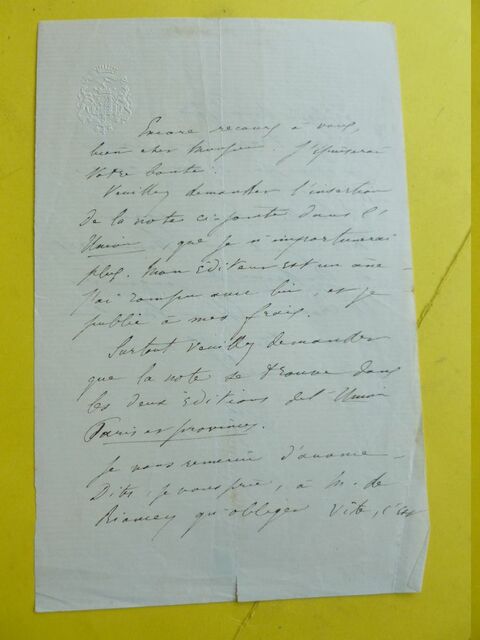 Encore recours à vous,
bien cher Monsieur. J'épuiserai
votre bonté.
Veuillez demander l'insertion
de la note ci-jointe dans l'
Union, que je n'importunerai
plus. Mon éditeur est un âne –
j'ai rompu avec lui, et je
publie à mes frais.
Surtout veuillez demander
que la note se trouve dans
les deux éditions de l'Union
Paris et province.
Je vous remercie d'avance –
Dites, je vous prie, à M. de
Riancey qu'obliger vite, c'est